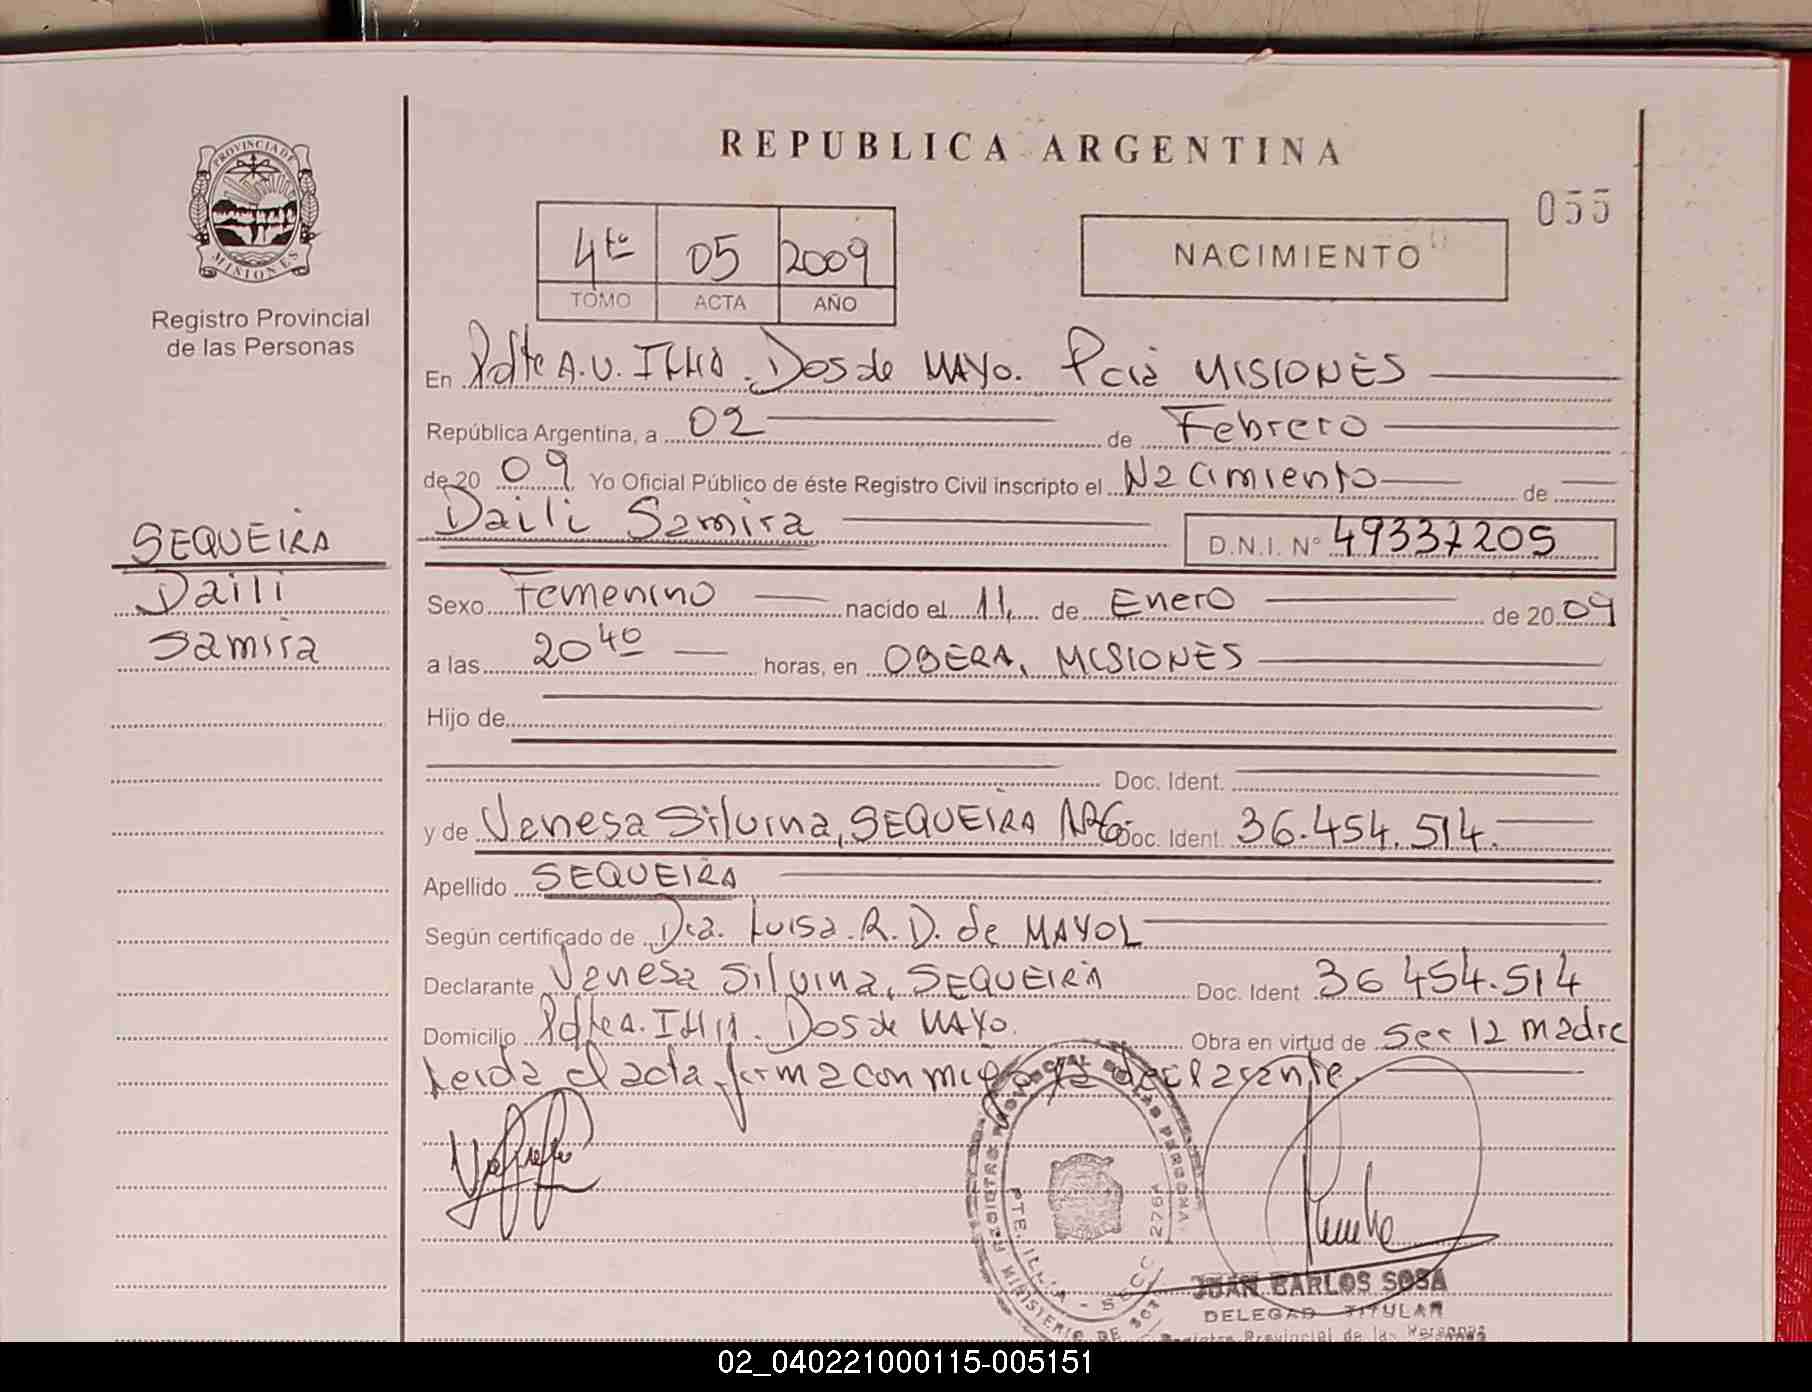 REPUBLICA ARGENTINA
055
PROVINCIA DE
MISIONES
Registro Provincial
de las Personas
4to 05 2009
TOMO ACTA AÑO
NACIMIENTO
En Pdte A.U. ILLIA. Dos de MAYO. Pcia MISIONES
República Argentina, a 02 de Febrero
de 20 09 Yo Oficial Público de éste Registro Civil inscripto el Nacimiento de
Daili Samira D.N.I. N° 49337205
SEQUEIRA
Daili
Samira
Sexo Femenino nacido el 11, de Enero de 20 09
a las 20 40 horas, en OBERA, MISIONES
Hijo de
Doc. Ident.
y de Vanesa Silvina, SEQUEIRA ARG. Doc. Ident. 36.454.514.
Apellido SEQUEIRA
Según certificado de Dra. Luisa. R. D. de MAYOL
Declarante Vanesa Silvina, SEQUEIRA Doc. Ident 36 454.514
Domicilio Pdte A. ILLIA. Dos de MAYO. Obra en virtud de ser la madre
Leida el acta, firma conmigo la declarante.
PTE. ILLIA - SECC 2769
JUAN CARLOS SOSA
DELEGAD TITULAR
Registro Provincial de las Personas
02_040221000115-005151